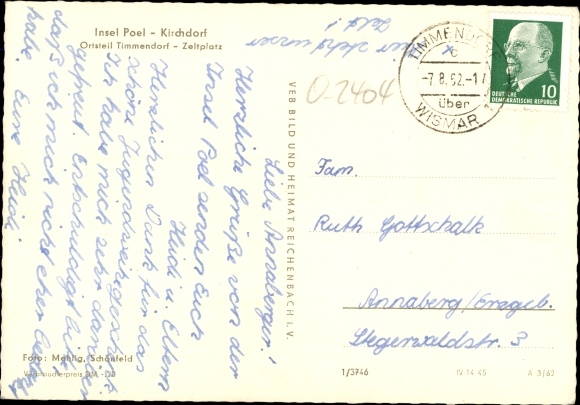 Insel Poel - Kirchdorf
Ortsteil Timmendorf - Zeltplatz
hier steht unser
Zelt!
Liebe Annaberger!
Herzliche Grüße von der
Insel Poel senden Euch
Heidi u. Eltern
Herzlichen Dank für das
schöne Jugendweihgeschenk
Ich habe mich sehr darüber
gefreut. Entschuldigt bitte,
daß ich mich nicht eher
habe. Eure Heidi
Foto: Mehlig, Schönfeld
Verbraucherpreis DM
VEB BILD UND HEIMAT REICHENBACH I. V.
0-2404
TIMMENDORF
-7.8.62.-17
über
WISMAR
10
DEUTSCHE
DEMOKRATISCHE REPUBLIK
Fam.
Ruth Gottschalk
Annaberg/Erzgeb.
Stegerwaldstr. 3
1/3746
IV 14 45
A 3/62